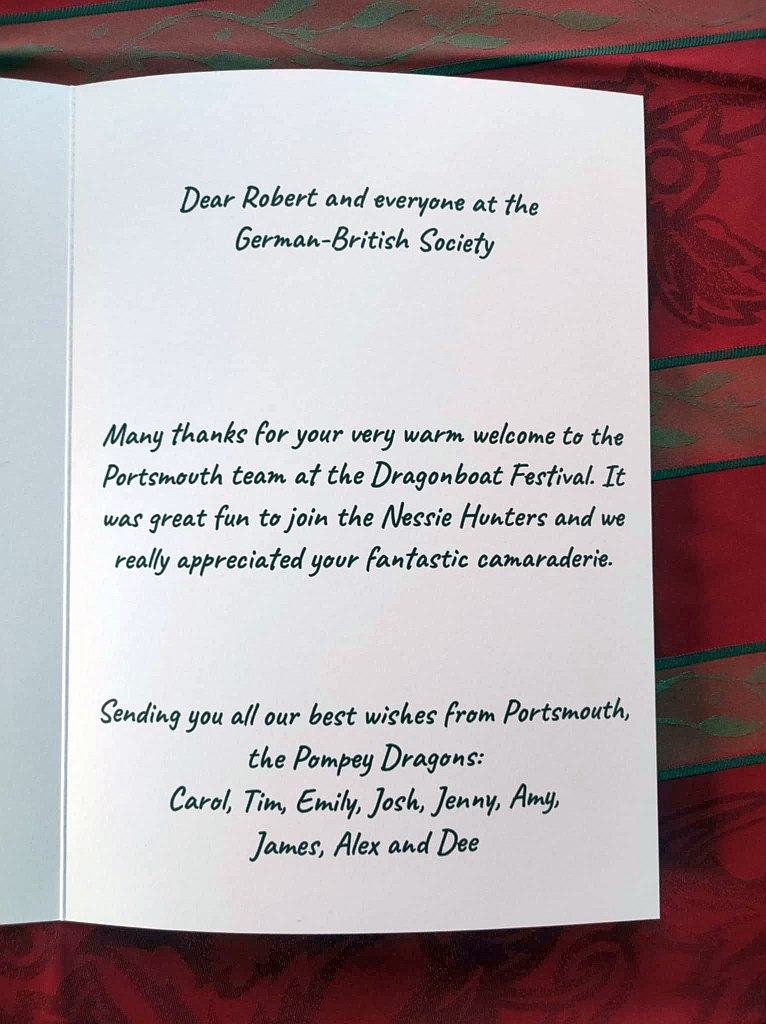 Dear Robert and everyone at the
German-British Society
Many thanks for your very warm welcome to the
Portsmouth team at the Dragonboat Festival. It
was great fun to join the Nessie Hunters and we
really appreciated your fantastic camaraderie.
Sending you all our best wishes from Portsmouth,
the Pompey Dragons:
Carol, Tim, Emily, Josh, Jenny, Amy,
James, Alex and Dee